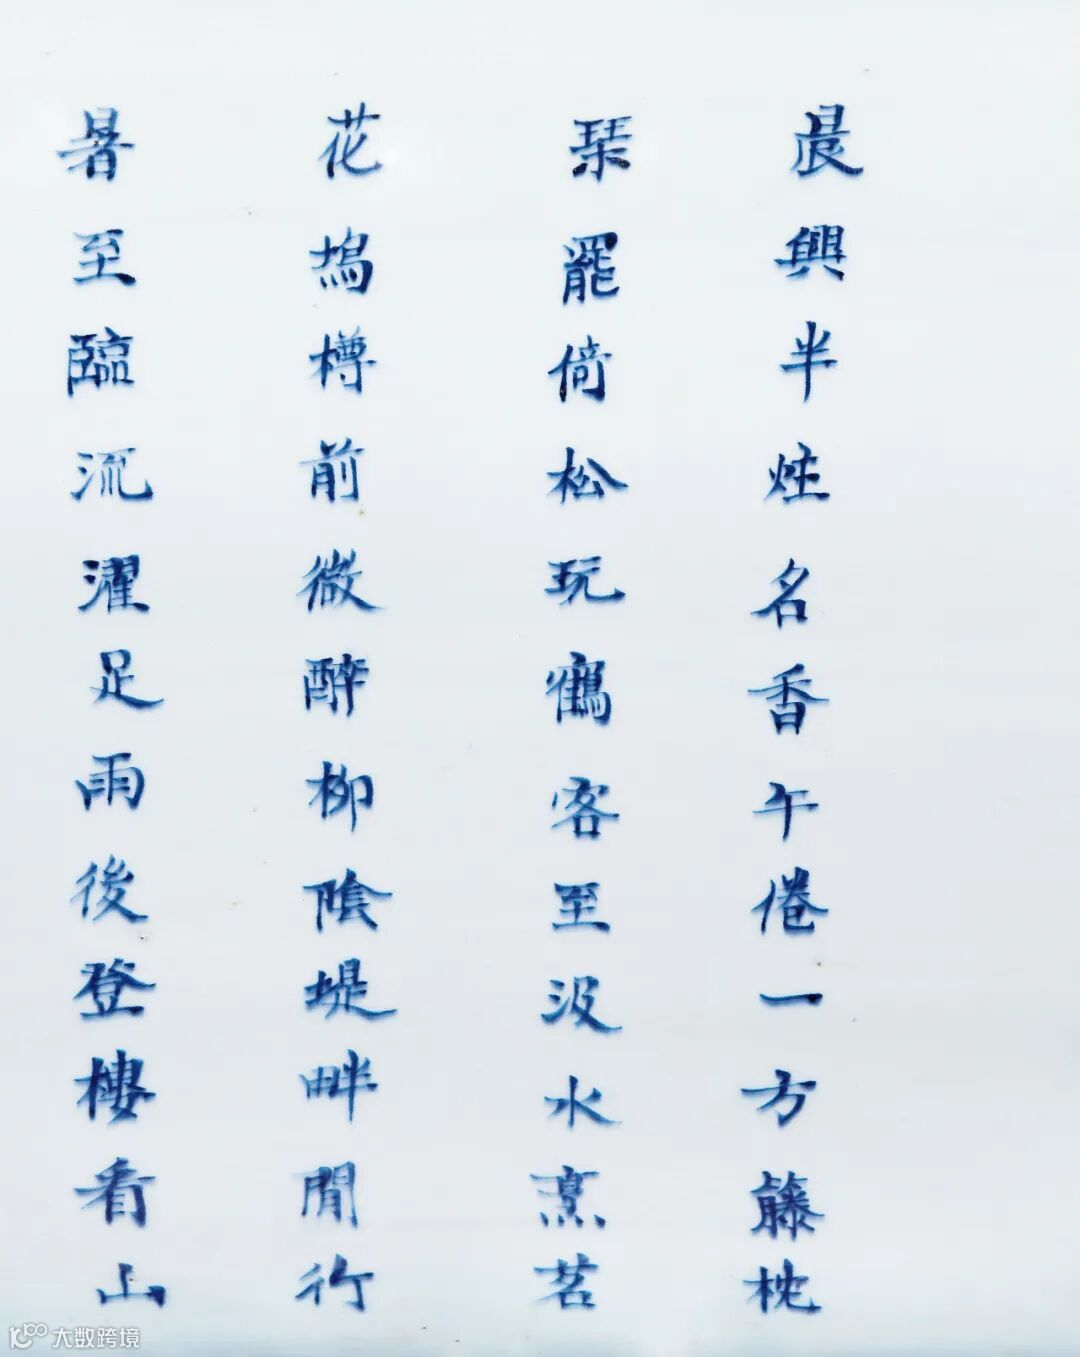 晨興半炷名香午倦一方籐枕
琹罷倚松玩鶴客至汲水烹茗
花塢樽前微醉柳陰堤畔閒行
暑至臨流濯足雨後登樓看山
大数跨境